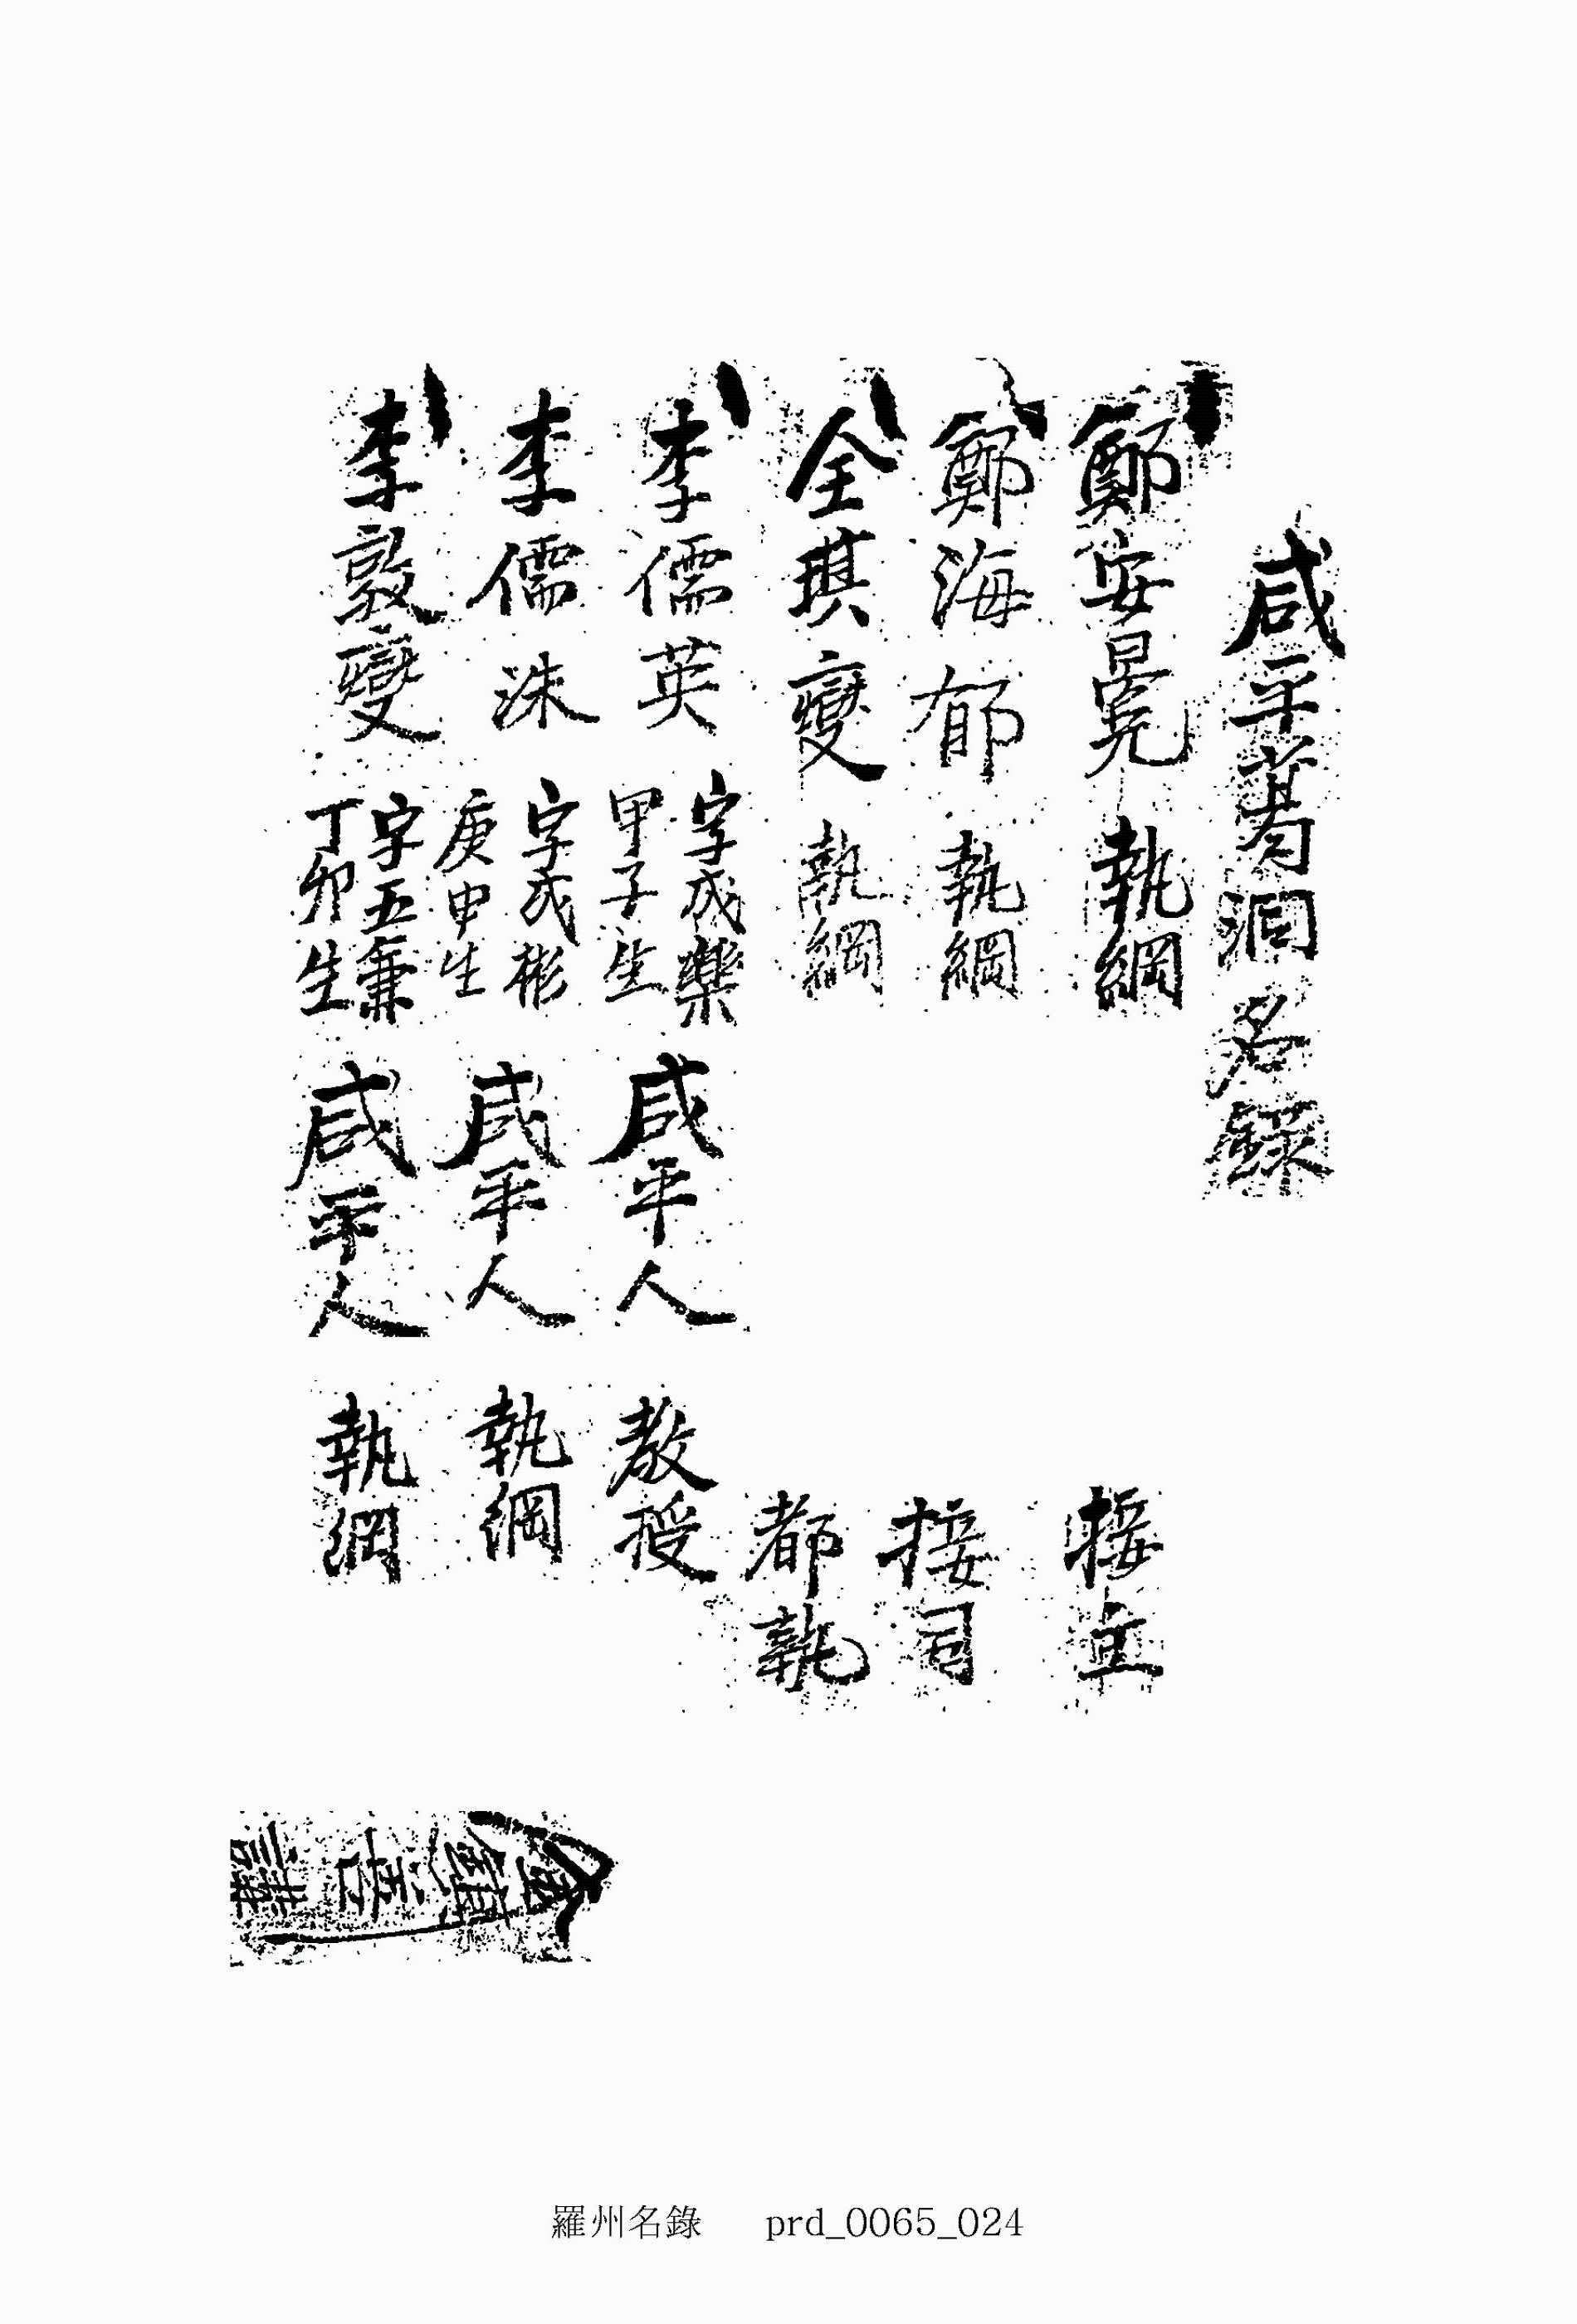 咸平洞名錄
鄭安冕 執綱 接主
鄭海郁 執綱 接司
全琪燮 執綱 都執
李儒英 字成樂 甲子生 咸平人 敎授
李儒洙 字成彬 庚申生 咸平人 執綱
李敦燮 字五兼 丁卯生 咸平人 執綱
羅州名錄 prd_0065_024